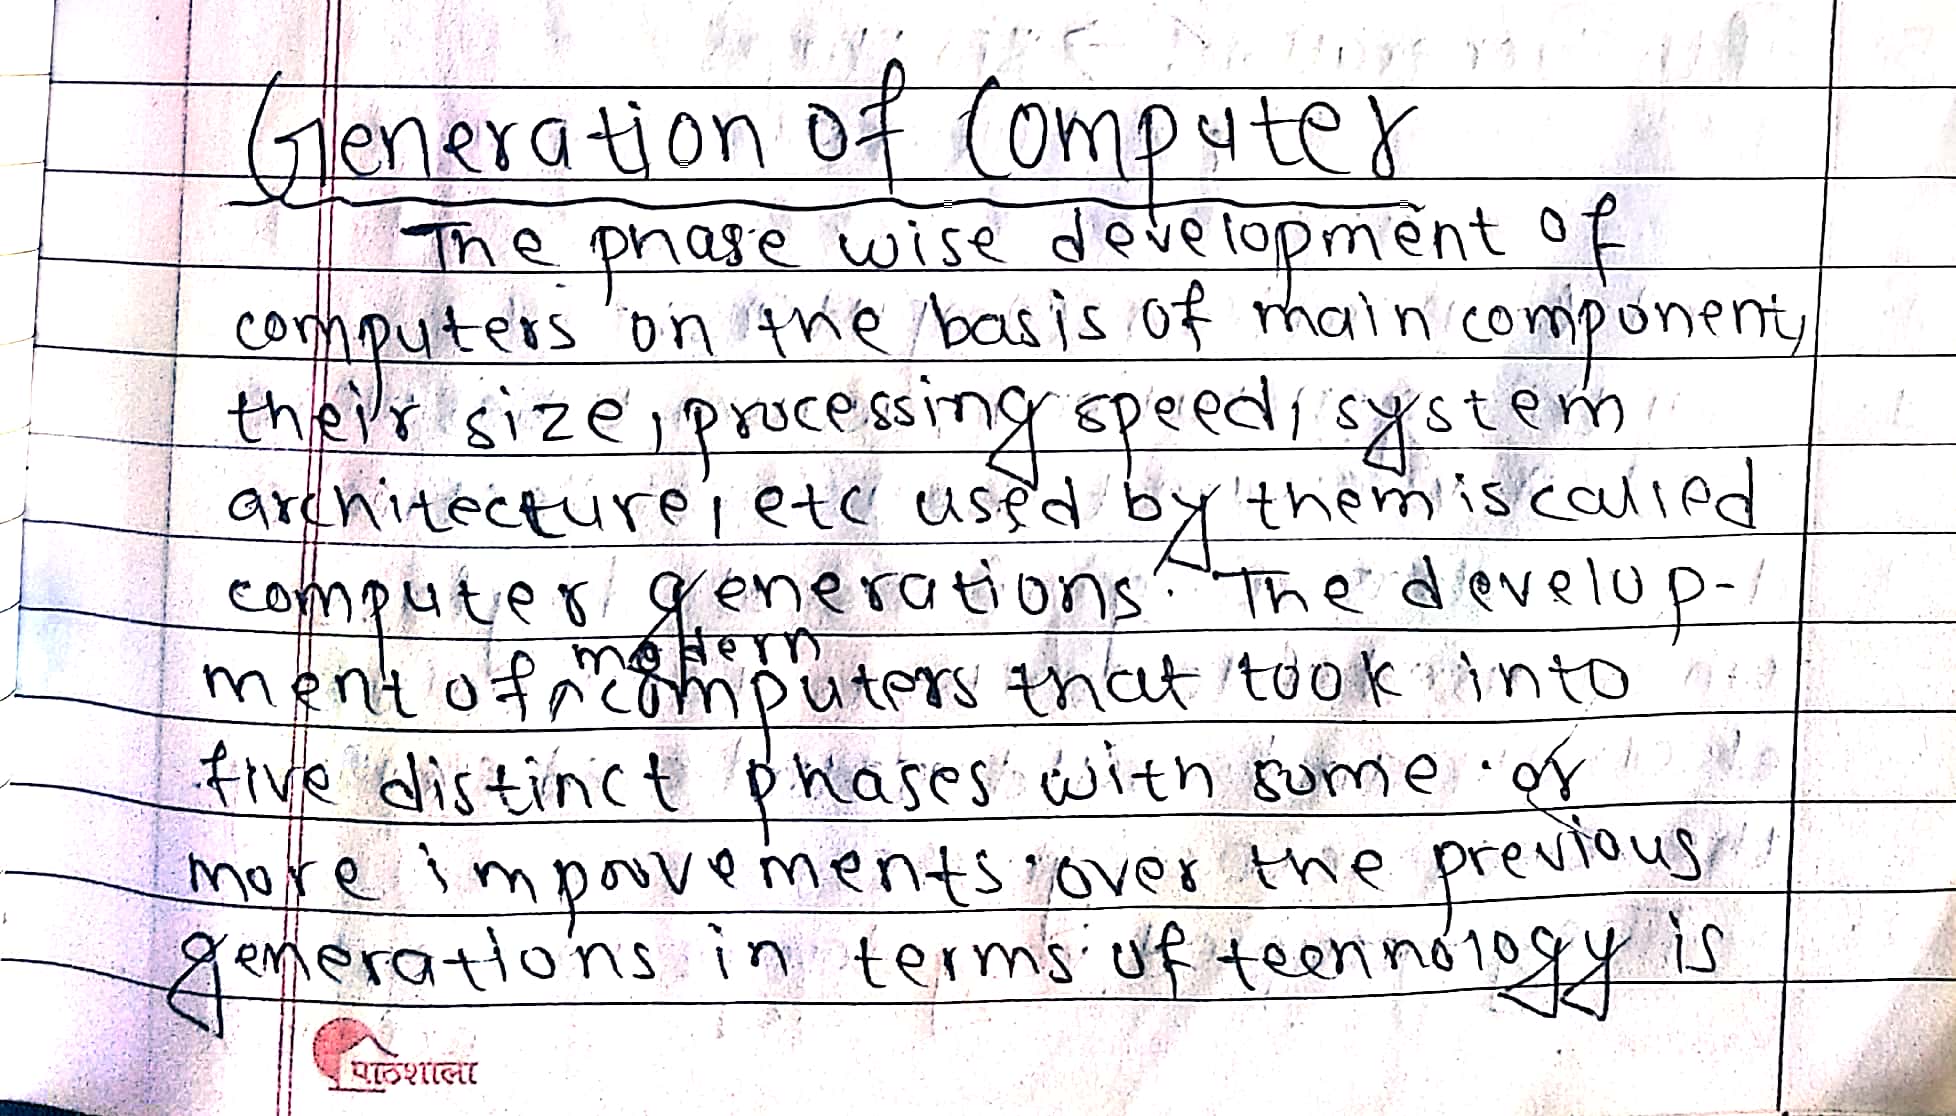 Generation of Computer
The phase wise development of
computers on the basis of main component,
their size, processing speed, system
architecture, etc used by them is called
computer generations. The develop-
modern
ment of ^ computers that took into
five distinct phases with some or
more improvements over the previous
generations in terms of technology is
पाठशाला